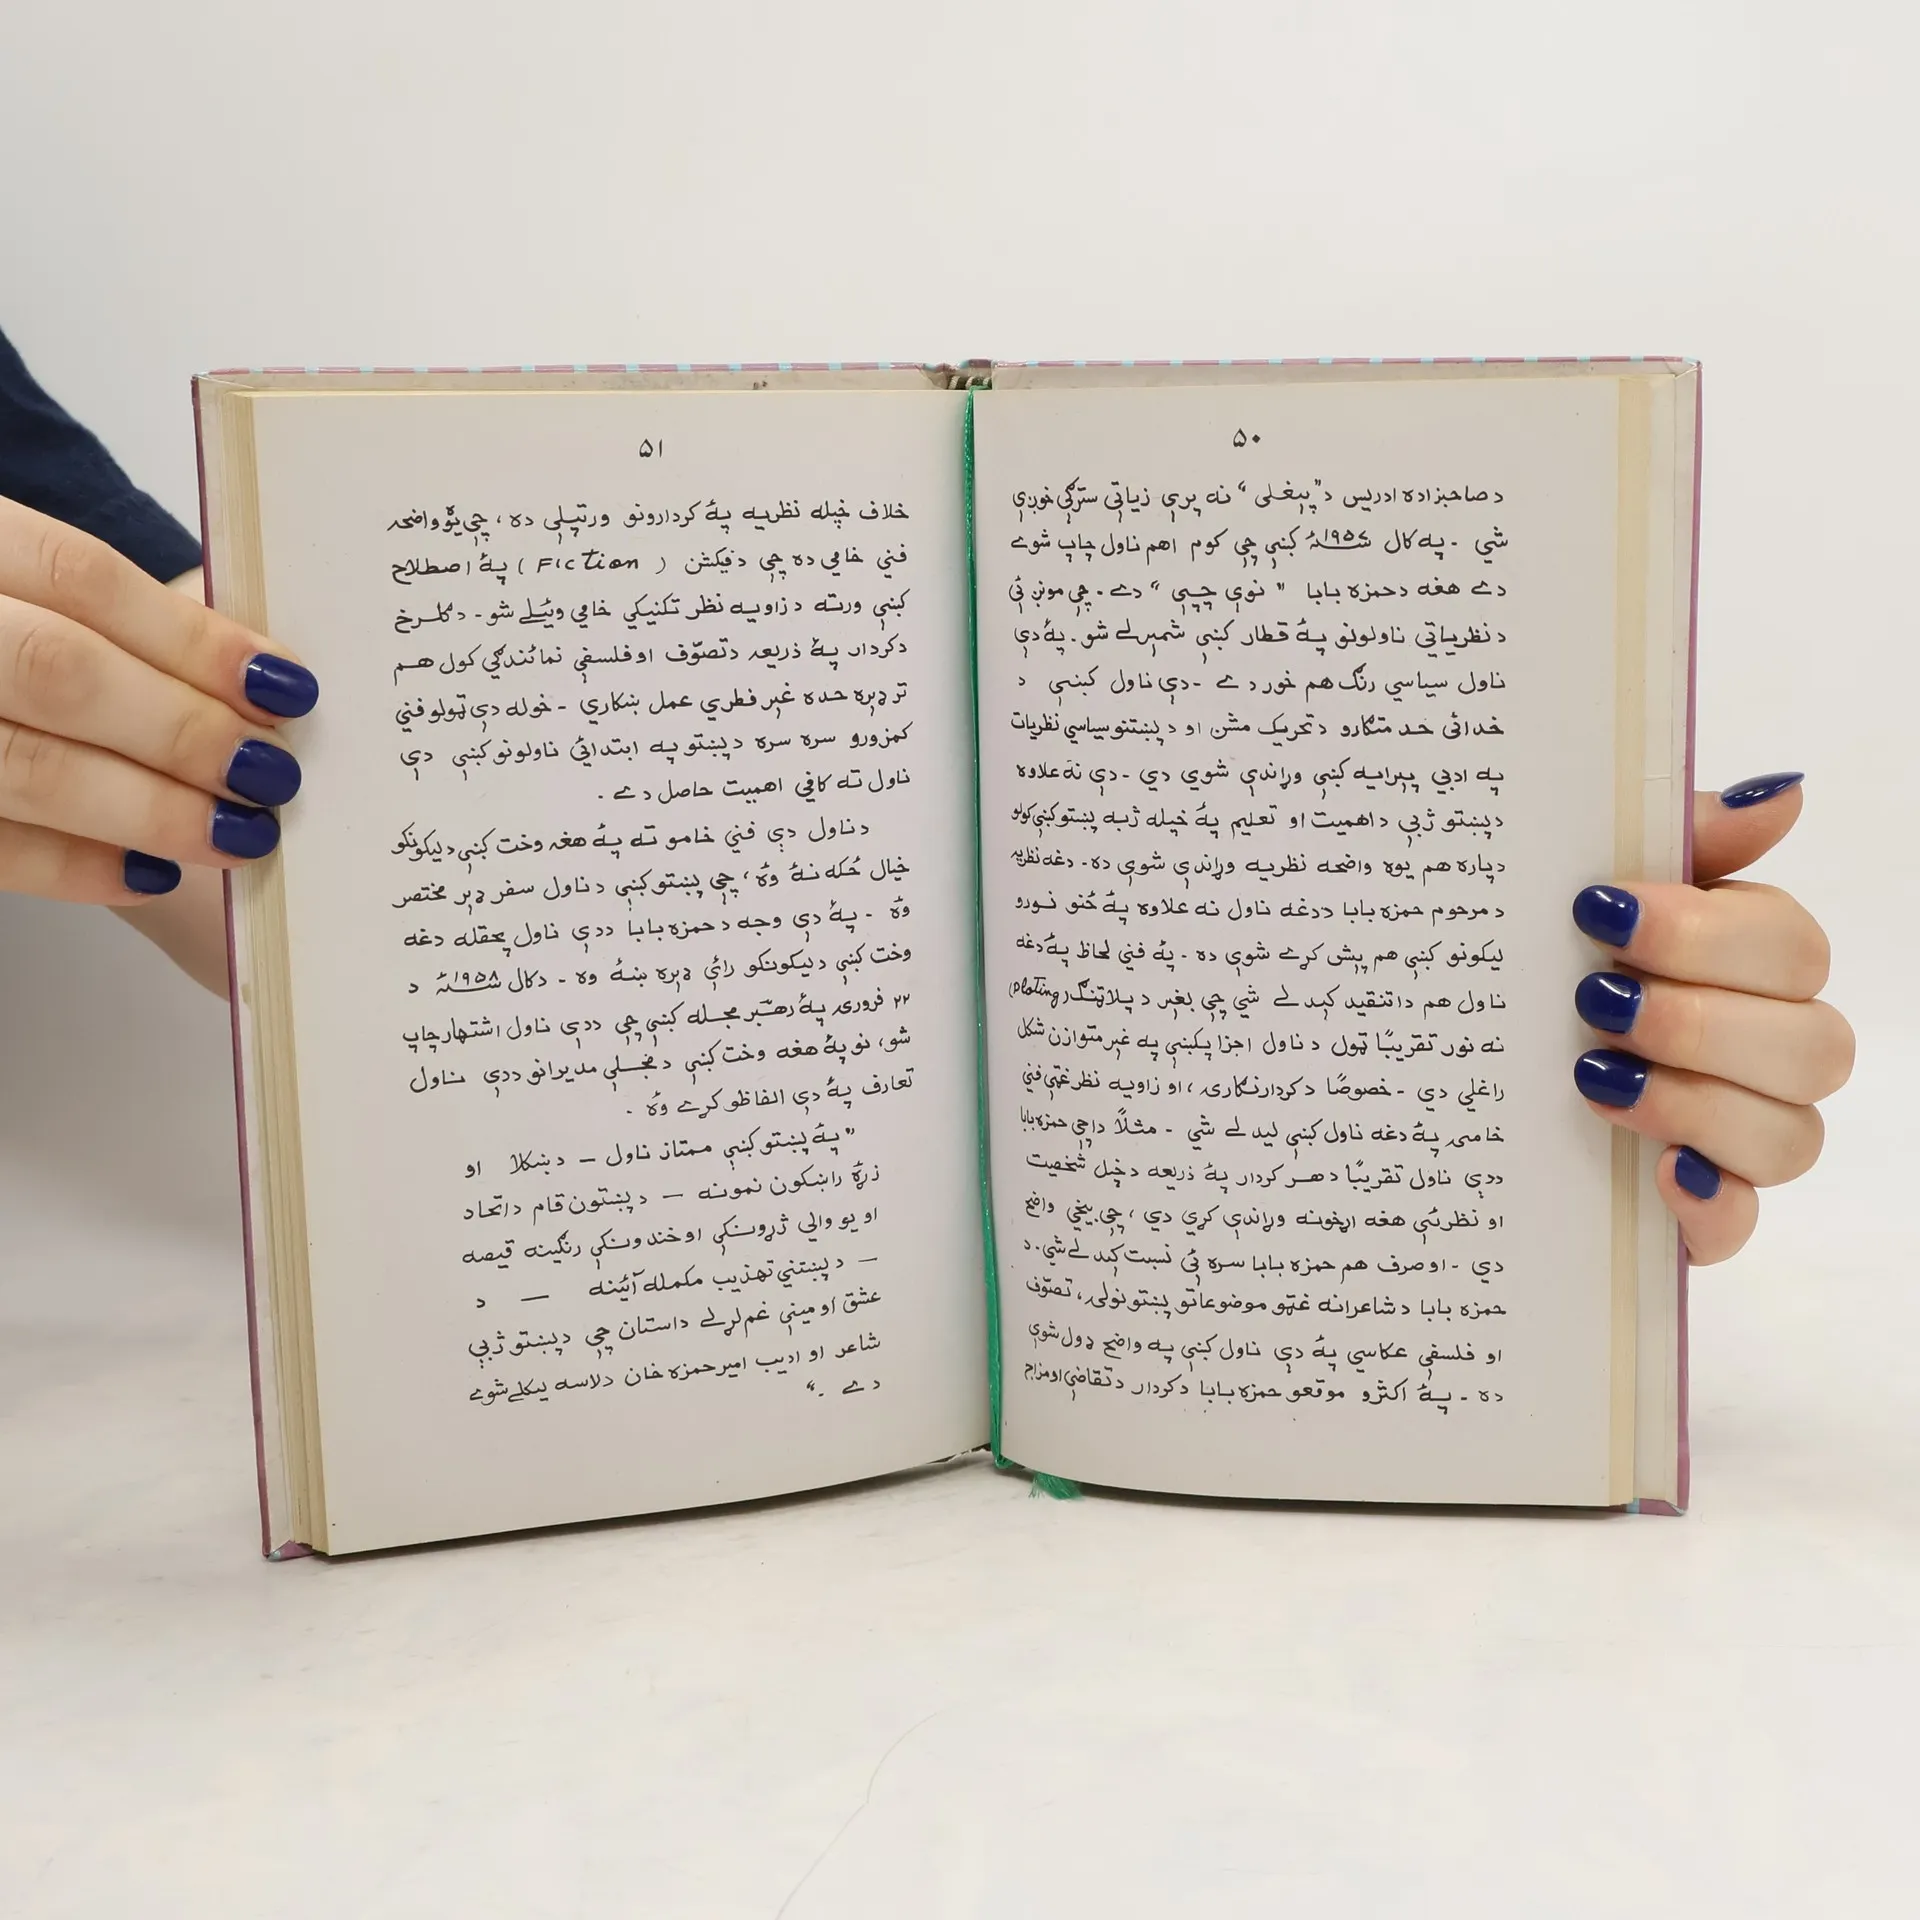 ۵۰
د صاحبزاده ادریس د "پېغلې" نه پرې زیاتې سترګې خوږې
شي - په کال ۱۹۵۷ء کښې چې کوم اهم ناول چاپ شوے
دے هغه د حمزه بابا "نوې چپې" دے - چې مونږ ئې
د نظریاتي ناولونو پهٔ قطار کښې شمېرلے شو - پهٔ دې
ناول سیاسي رنګ هم خور دے - دې ناول کښې د
خدائي خدمتګارو د تحریک مشن او د پښتنو سیاسي نظریات
په ادبي پېرایه کښې وړاندې شوي دي - دې نه علاوه
د پښتو ژبې د اهمیت او تعلیم پهٔ خپله ژبه پښتو کښې کولو
دپاره هم یوه واضحه نظریه وړاندې شوې ده - دغه نظریه
د مرحوم حمزه بابا د دغه ناول نه علاوه پهٔ ځنو نورو
لیکونو کښې هم پېش کړے شوې ده - پهٔ فني لحاظ پهٔ دغه
ناول هم دا تنقید کېدلے شي چې بغېر د پلاټنګ (Ploting)
نه نور تقریبًا ټول د ناول اجزا پکښې په غېر متوازن شکل
راغلي دي - خصوصًا د کردار نګارۍ، او زاویه نظر غټې فني
خامۍ پهٔ دغه ناول کښې لیدلے شي - مثلاً دا چې حمزه بابا
ددې ناول تقریبًا د هر کردار پهٔ ذریعه د خپل شخصیت
او نظرئې هغه اړخونه وړاندې کړي دي، چې بیخي واضح
دي - او صرف هم حمزه بابا سره ئې نسبت کېدلے شي - د
حمزه بابا د شاعرانه غټو موضوعاتو پښتونولۍ، تصوّف
او فلسفې عکاسي پهٔ دې ناول کښې په واضح ډول شوې
ده - پهٔ اکثرو موقعو حمزه بابا د کردار د تقاضې او مزاج
۵۱
خلاف خپله نظریه پهٔ کردارونو ورتپلې ده، چې یوه واضحه
فني خامي ده چې د فیکشن (Fiction) پهٔ اصطلاح
کښې ورته د زاویه نظر تکنیکي خامي وئیلے شو - د ګلرخ
د کردار پهٔ ذریعه د تصوّف او فلسفې نمائندګي کول هم
تر ډېره حده غېر فطري عمل ښکاري - خو له دې ټولو فني
کمزورو سره سره د پښتو په ابتدائي ناولونو کښې دې
ناول ته کافي اهمیت حاصل دے -
د ناول دې فني خامو ته پهٔ هغه وخت کښې د لیکونکو
خیال ځکه نهٔ وهٔ، چې پښتو کښې د ناول سفر ډېر مختصر
وهٔ - پهٔ دې وجه د حمزه بابا ددې ناول پحقله دغه
وخت کښې د لیکونکو رائې ډېره ښهٔ وه - د کال ۱۹۵۸ء د
۲۲ فرورۍ پهٔ رهبر مجله کښې چې ددې ناول اشتهار چاپ
شو، نو پهٔ هغه وخت کښې د مجلې مدیرانو ددې ناول
تعارف پهٔ دې الفاظو کړے وهٔ -
"پهٔ پښتو کښې ممتاز ناول — د ښکلا او
زړهٔ راښکون نمونه — د پښتون قام د اتحاد
او یو والي ژړونکې او خندونکې رنګینه قیصه
— د پښتني تهذیب مکمله آئینه — د
عشق او مینې غم لړلے داستان چې د پښتو ژبې
شاعر او ادیب امیر حمزه خان د لاسه لیکلے شوے
دے -"